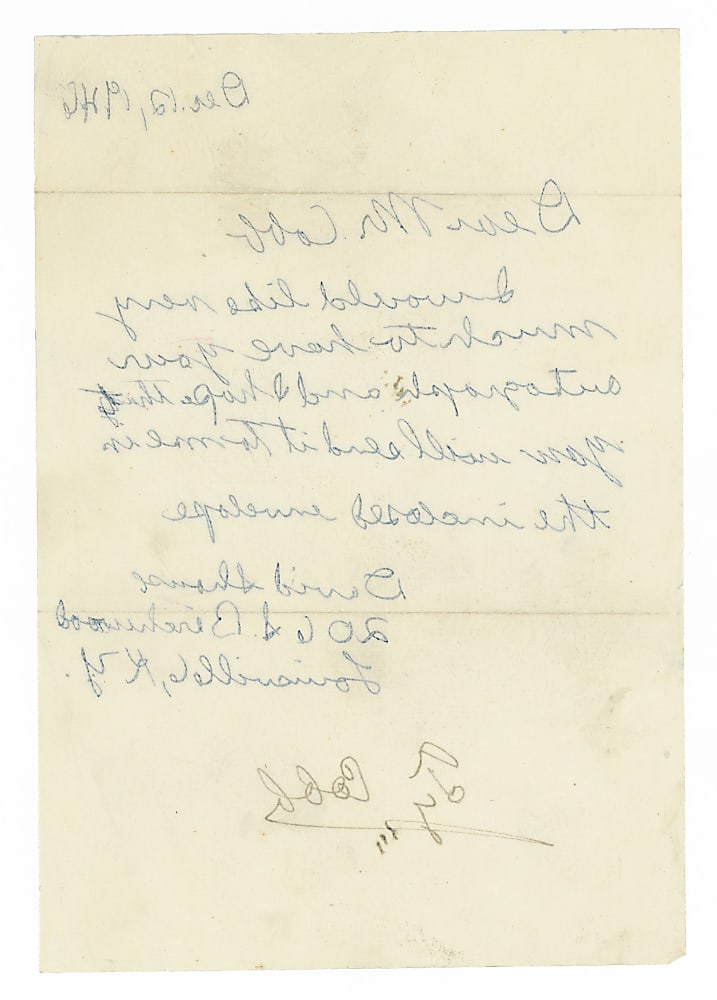 Dec. 12, 1946
Dear Mr. Cobb
I would like very
much to have your
autograph and I hope that
you will send it to me in
the inclosed envelope
David Shouse
206 S. Birchwood
Louisville, K Y.
Ty Cobb